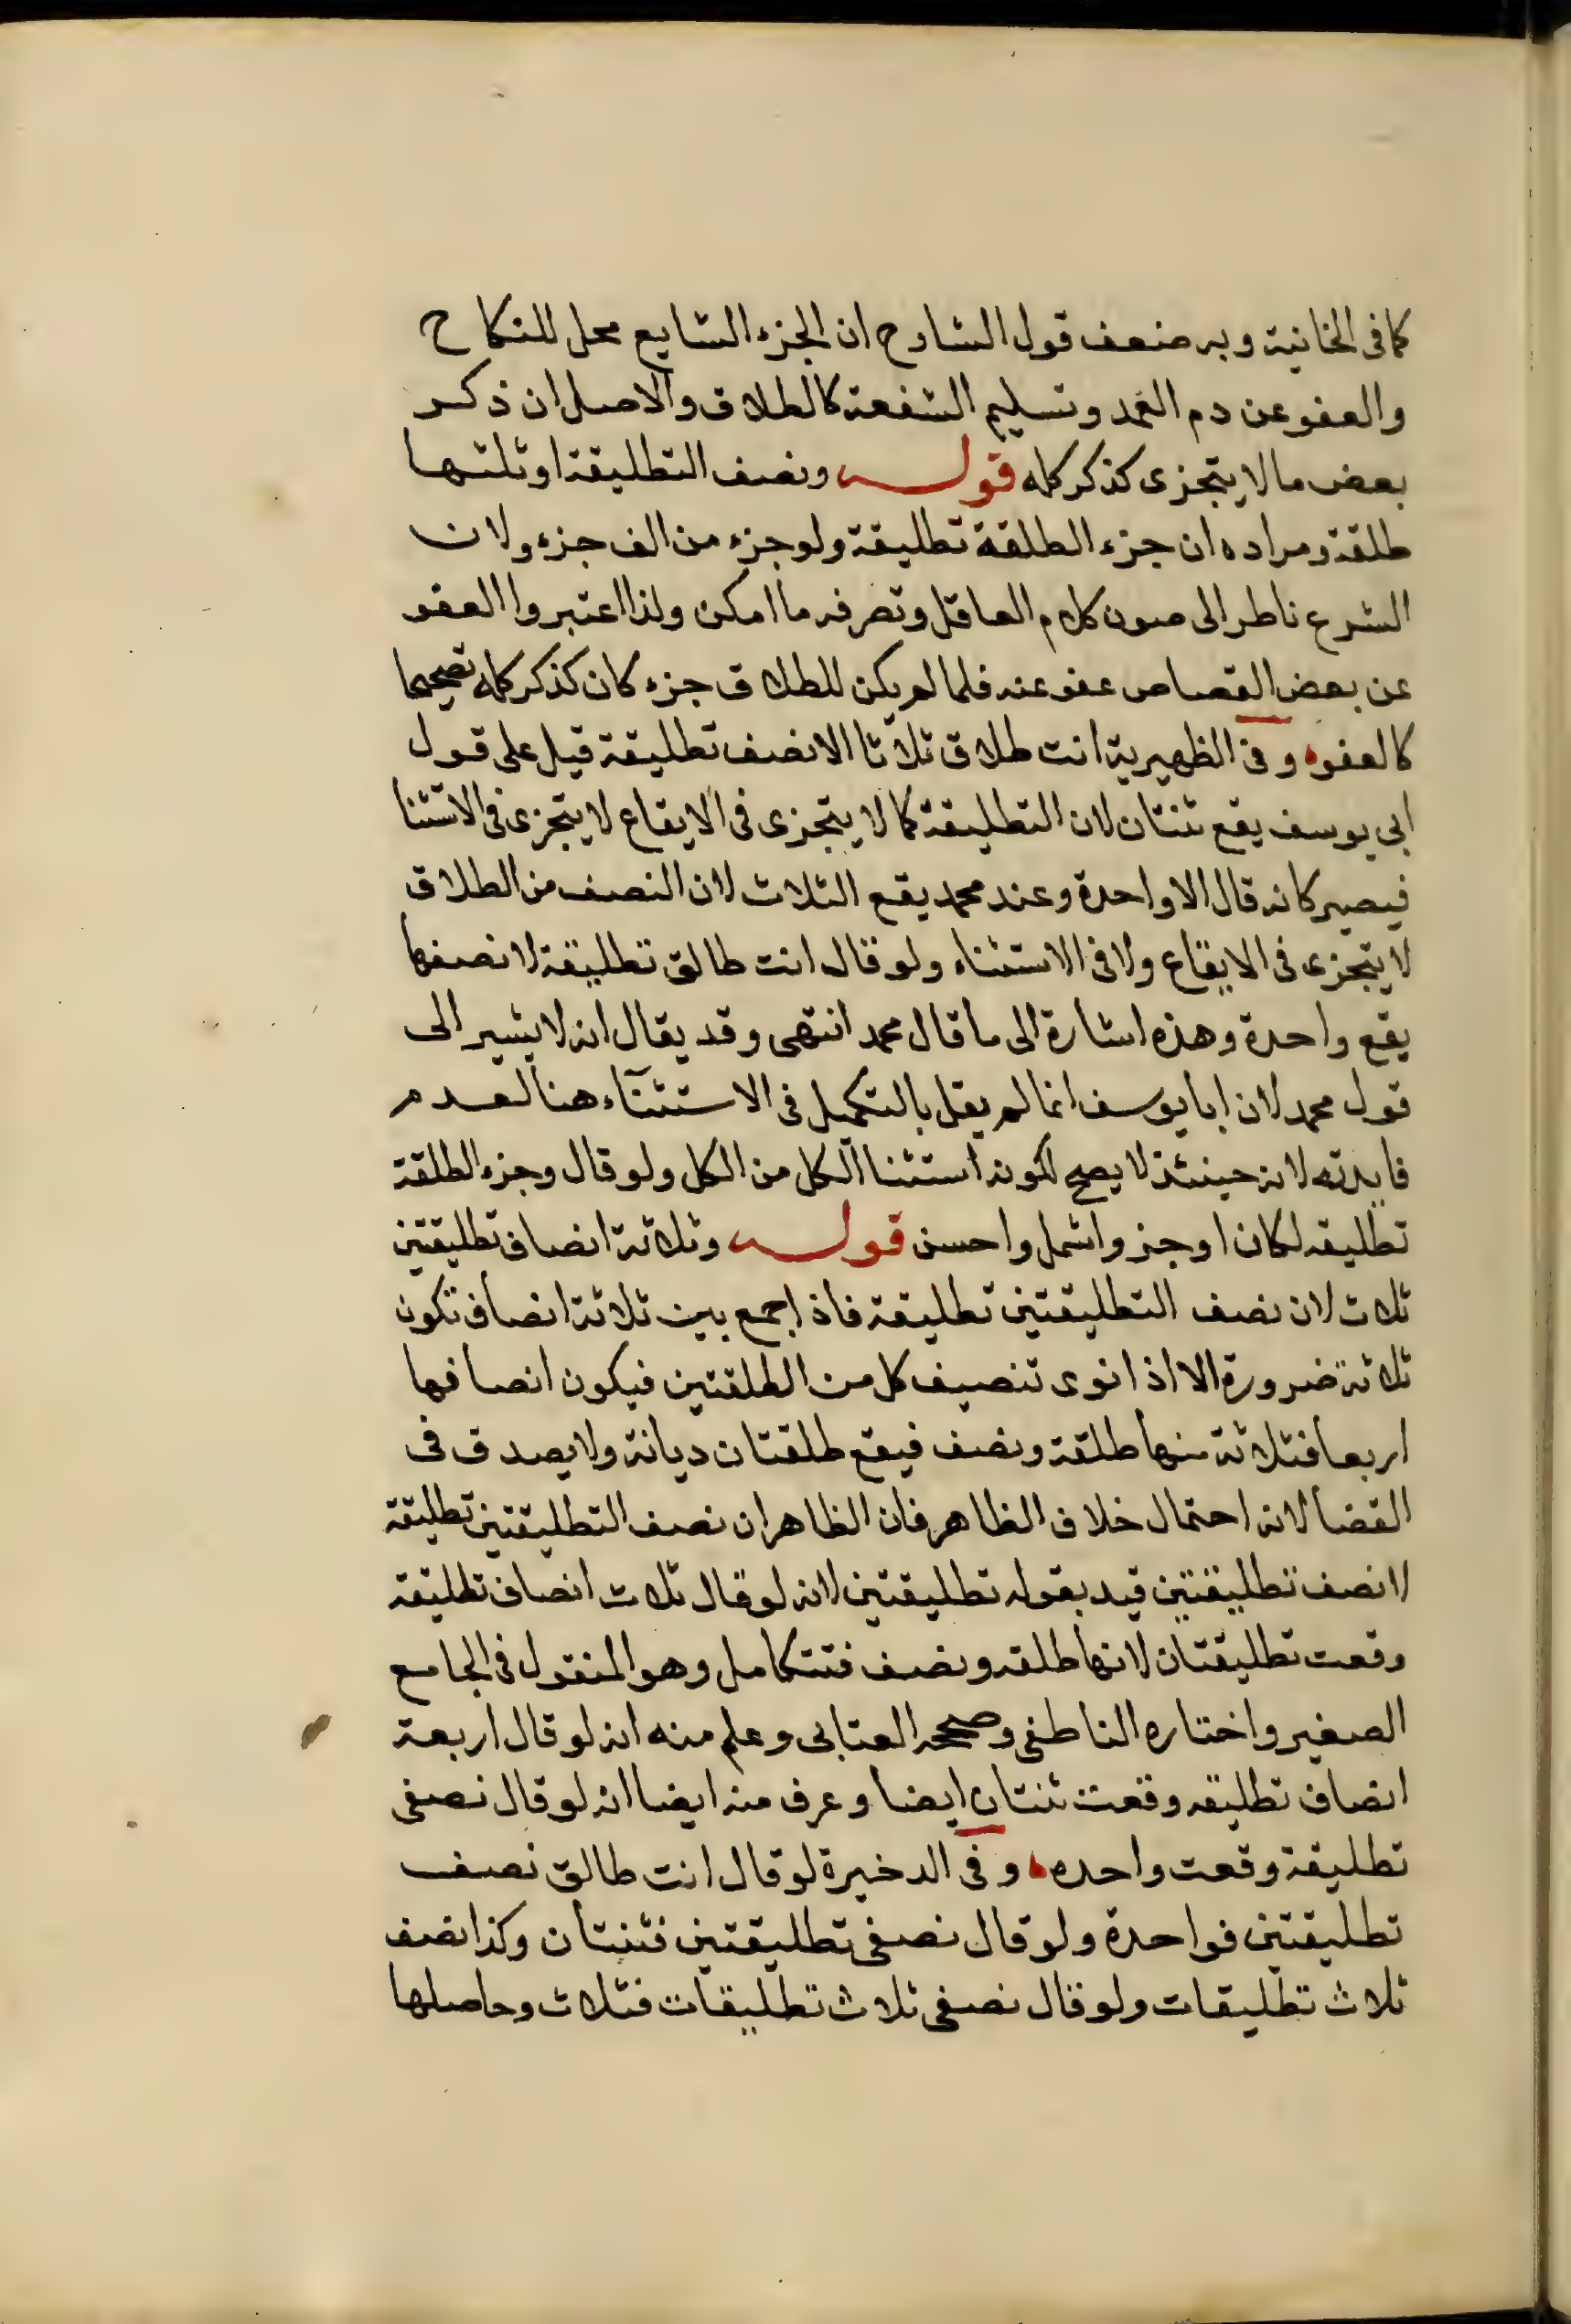 كما فى الخانية وبه ضعف قول الشارح ان الجزء الشايع محل للنكاح
والعفو عن دم العمد وتسليم الشفعة كالطلاق والاصل ان ذكر
بعض ما لا يتجزى كذكر كله قوله ونصف التطليقة او ثلثها
طلقة ومراده ان جزء الطلقة تطليقة ولو جزء من الف جزء ولان
الشرع ناظر الى صون كلام العاقل وتصرفه ما امكن ولذا اعتبروا العفو
عن بعض القصاص عفو عنه فلما لم يكن للطلاق جزء كان كذكر كله تصحيحا
كالعفوه وفى الظهيرية انت طلاق ثلاثا الا نصف تطليقة قيل على قول
ابى يوسف يقع ثنتان لان التطليقة كما لا يتجزى فى الايقاع لا يتجزى فى الاستثنا
فيصير كانه قال الا واحدة وعند محمد يقع الثلاث لان النصف من الطلاق
لا يتجزى فى الايقاع ولا فى الاستثناء ولو قال انت طالق تطليقة لا نصفها
يقع واحدة وهذه اشارة الى ما قال محمد انتهى وقد يقال انه لا يشير الى
قول محمد لان ابا يوسف انما لم يقل بالتكميل فى الاستثنآء هنا لعدم
فايدته لانه حينئذ لا يصح لكونه استثنا الكل من الكل ولو قال وجزء الطلقة
تطليقه لكان اوجز واشمل واحسن قوله وثلاثة انصاف تطليقتين
ثلاث لان نصف التطليقتين تطليقة فاذا جمع بين ثلاثة انصاف تكون
ثلاثة ضرورة الا اذا نوى تنصيف كل من الطلقتين فيكون انصافها
اربعا فثلاثة منها طلقة ونصف فيقع طلقتان ديانة ولا يصدق فى
القضا لانه احتمال خلاف الظاهر فان الظاهر ان نصف التطليقتين تطليقة
لا نصف تطليقتين قيد بقوله تطليقتين لانه لو قال ثلاث انصاف تطليقة
وقعت تطليقتان لانها طلقه ونصف فتتكامل وهو المنقول فى الجامع
الصغير واختاره الناطفى وصححه العتابى وعلم منه انه لو قال اربعة
انصاف تطليقه وقعت ثنتان ايضا وعرف منه ايضا انه لو قال نصفى
تطليقة وقعت واحده وفى الدخيرة لو قال انت طالق نصف
تطليقتين فواحدة ولو قال نصفى تطليقتين فثنتان وكذا نصف
ثلاث تطليقات ولو قال نصفى ثلاث تطليقات فثلاث وحاصلها